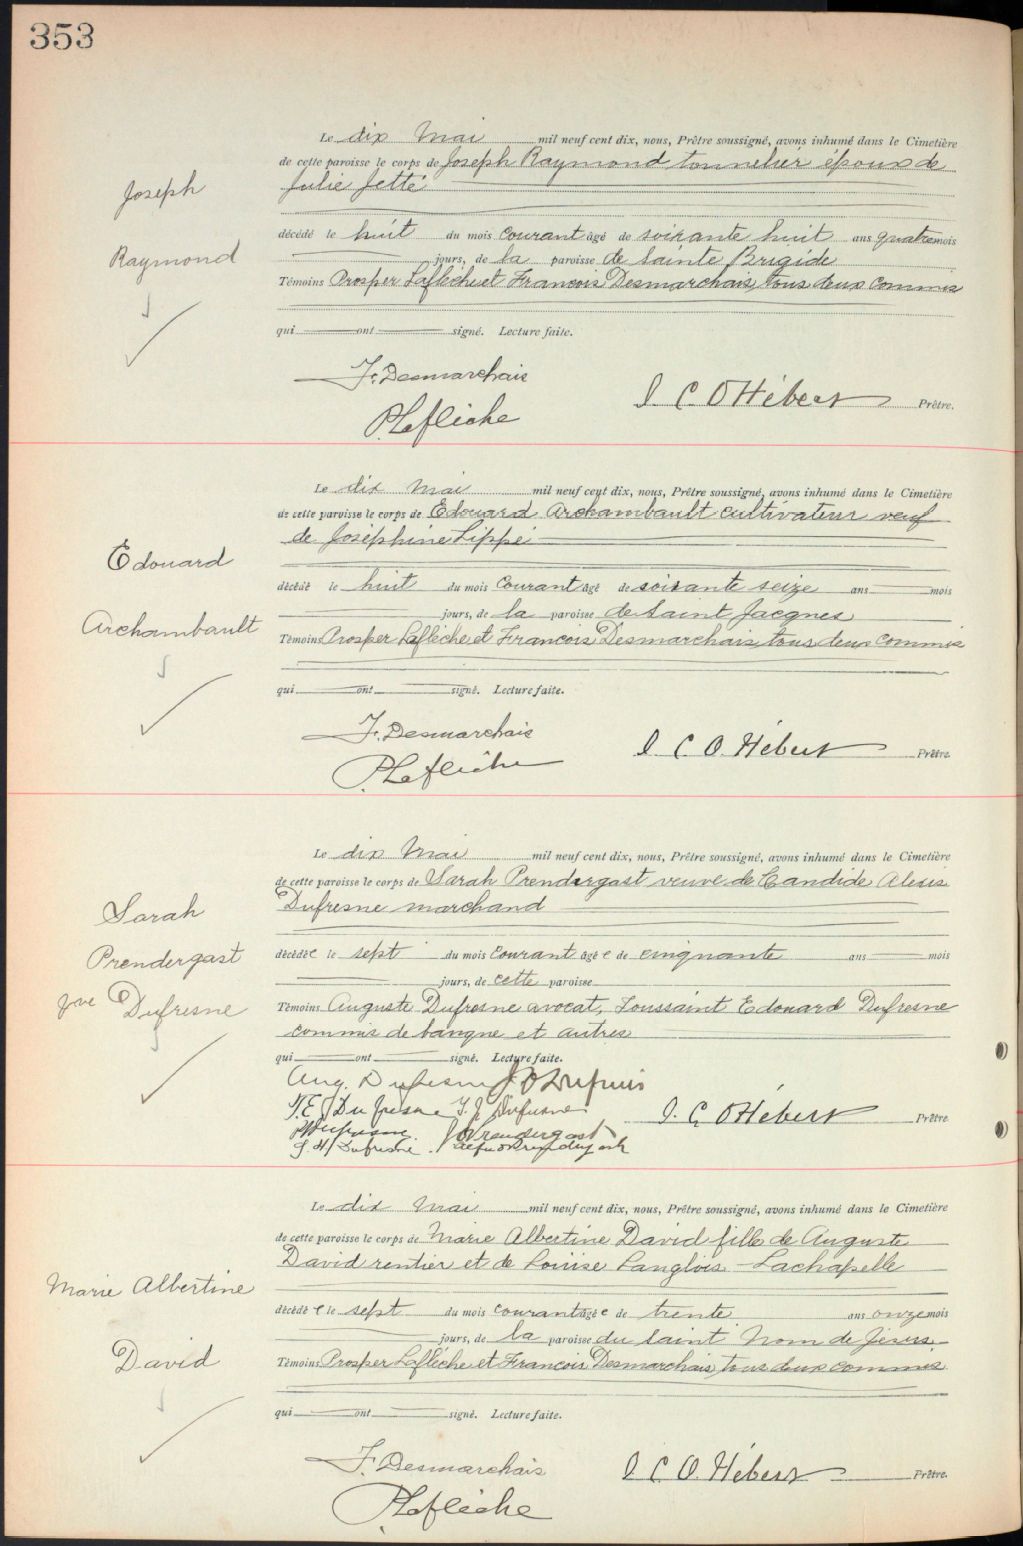 353
Le dix Mai mil neuf cent dix, nous, Prêtre soussigné, avons inhumé dans le Cimetière
de cette paroisse le corps de Joseph Raymond tonnelier époux de
Julie Jetté
Joseph
Raymond
décédé le huit du mois courant âgé de soixante huit ans quatre mois
jours, de la paroisse de Sainte Brigide
Témoins Prosper Laflèche et François Desmarchais, tous deux commis
qui ont signé. Lecture faite.
F. Desmarchais
P. Laflèche
J. C. O Hébert Prêtre.
Le dix Mai mil neuf cent dix, nous, Prêtre soussigné, avons inhumé dans le Cimetière
de cette paroisse le corps de Edouard Archambault cultivateur veuf
de Joséphine Lippé
Edouard
Archambault
décédé le huit du mois courant âgé de soixante seize ans mois
jours, de la paroisse de Saint Jacques
Témoins Prosper Laflèche et François Desmarchais, tous deux commis
qui ont signé. Lecture faite.
F. Desmarchais
P. Laflèche
J. C. O. Hébert Prêtre.
Le dix Mai mil neuf cent dix, nous, Prêtre soussigné, avons inhumé dans le Cimetière
de cette paroisse le corps de Sarah Prendergast veuve de Candide Alexis
Dufresne marchand
Sarah
Prendergast
Dufresne
décédée le sept du mois courant âgée de cinquante ans mois
jours, de cette paroisse
Témoins Auguste Dufresne avocat, Toussaint Edouard Dufresne
commis de banque et autres
qui ont signé. Lecture faite.
Aug. Dufresne J O Dupuis
T. E. Dufresne T. J. Dufresne
Dufresne. Prendergast
Dufresne.
J. C. O Hébert Prêtre
Le dix Mai mil neuf cent dix, nous, Prêtre soussigné, avons inhumé dans le Cimetière
de cette paroisse le corps de Marie Albertine David fille de Auguste
David rentier et de Louise Langlois - Lachapelle
Marie Albertine
David
décédée le sept du mois courant âgée de trente ans onze mois
jours, de la paroisse du Saint Nom de Jésus.
Témoins Prosper Laflèche et François Desmarchais, tous deux commis
qui ont signé. Lecture faite.
F. Desmarchais
P. Laflèche
J. C. O. Hébert Prêtre.